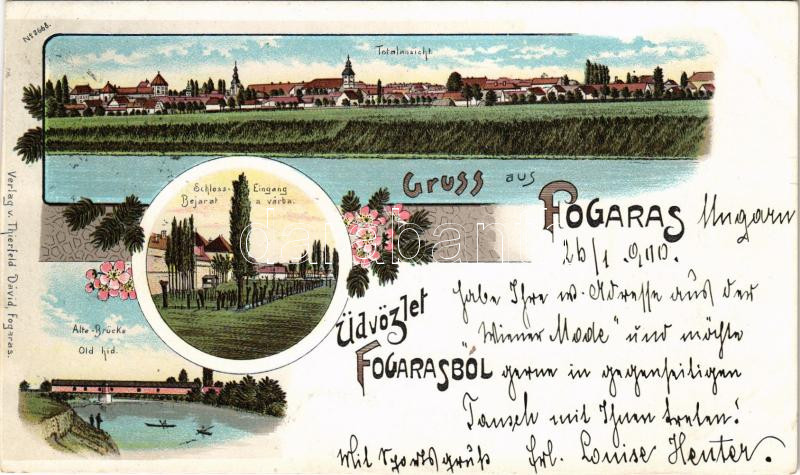 No 2668.
Totalansicht.
Gruss aus
FOGARAS Ungarn
Schloss- Eingang
Bejarat a várba.
26/1 900.
habe Ihre w. Adresse aus der
"Wiener Mode" und möchte
gerne in gegenseitigen
Tausch mit Ihnen treten!
Mit Sportsgruß Erl. Louise Henter.
Üdvözlet
FOGARASBÓL
Alte-Brücke
Old hid.
Verlag v. Thierfeld Dávid, Fogaras.
darabanth